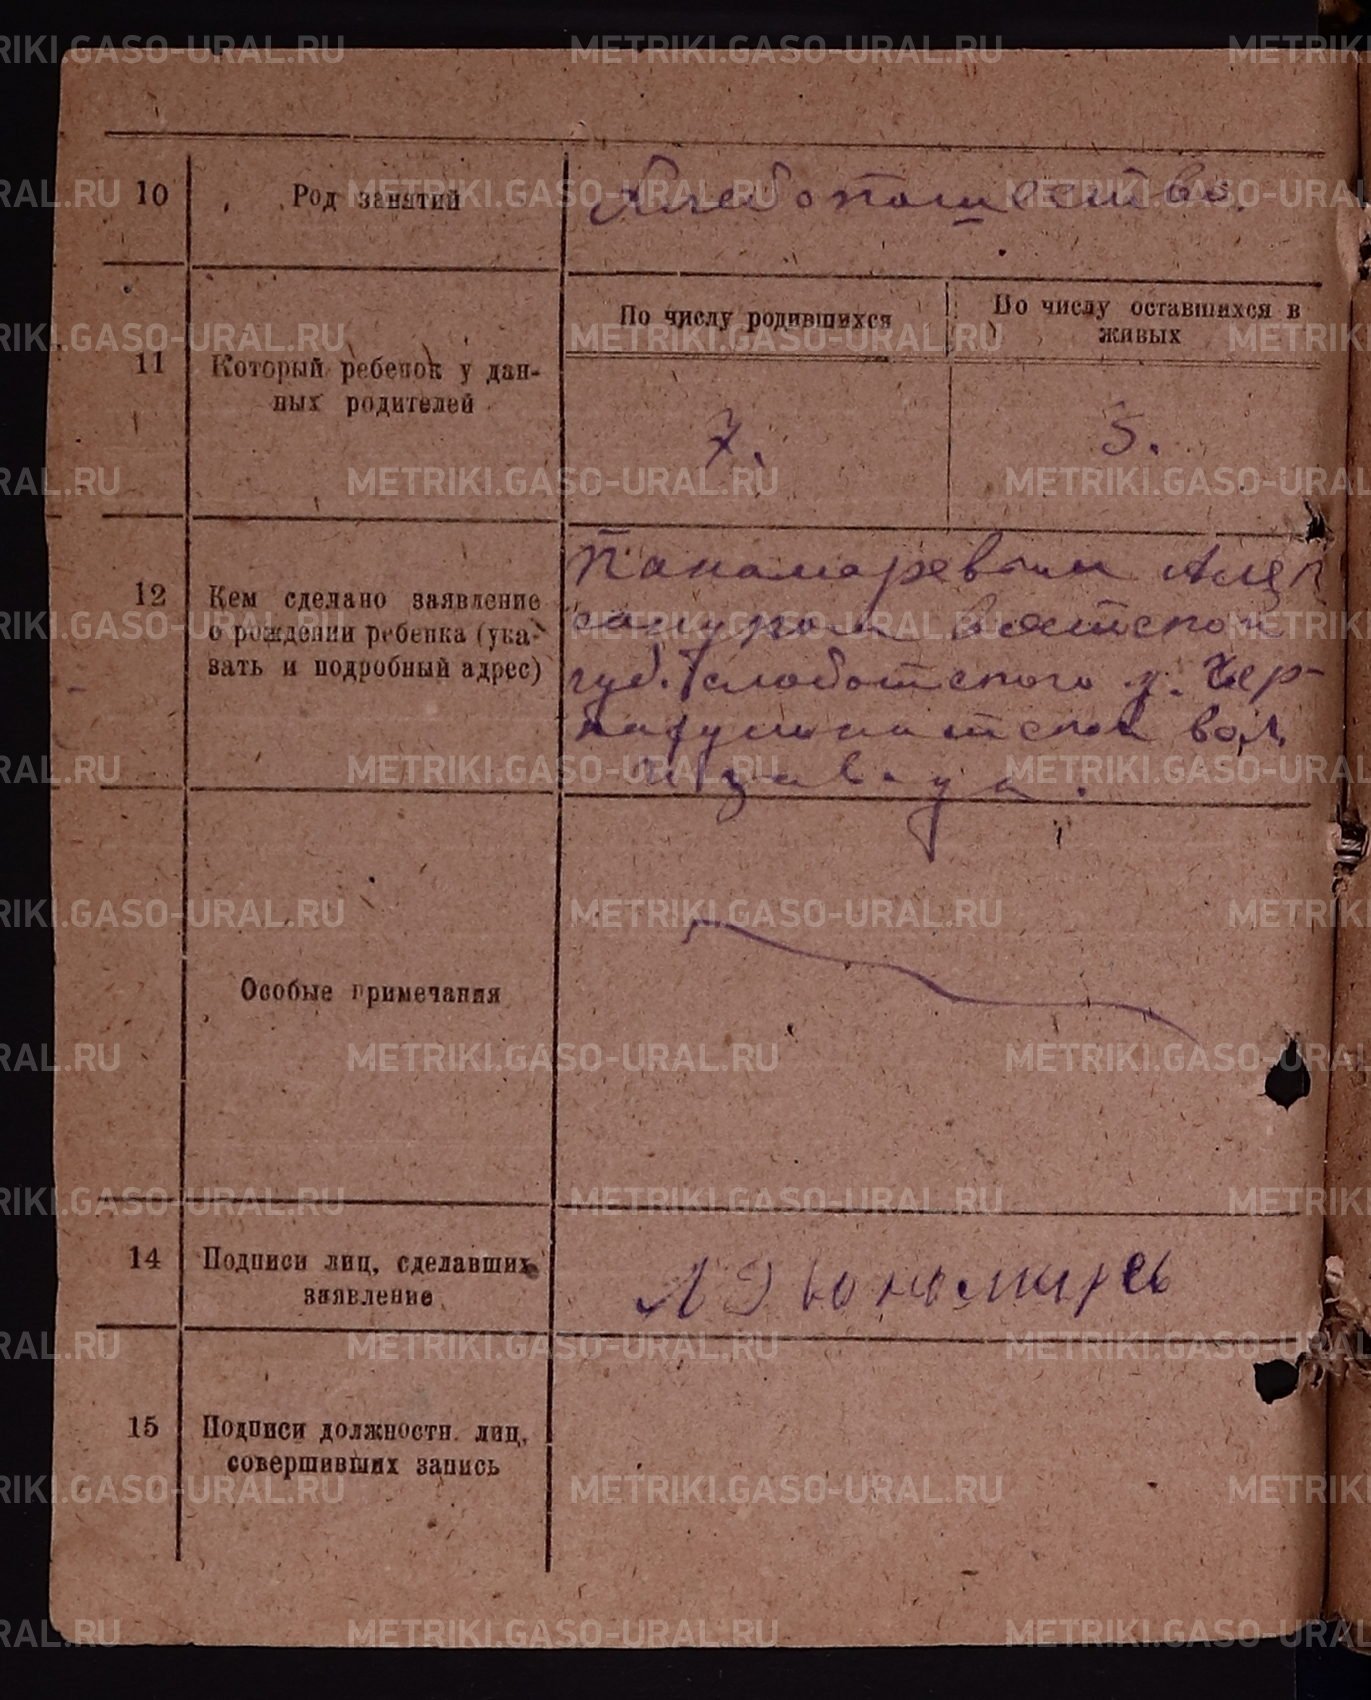 10
Род занятий
Хлебопашество.
11
Который ребенок у дан-
ных родителей
По числу родившихся
По числу оставшихся в
живых
7.
5.
12
Кем сделано заявление
о рождении ребенка (ука-
зать и подробный адрес)
Панамаревым Алек
сандром Вятской
губ. Слободского у.
вол.
завода.
Особые примечания
14
Подписи лиц, сделавших
заявление
15
Подписи должностн. лиц,
совершивших запись
METRIKI.GASO-URAL.RU